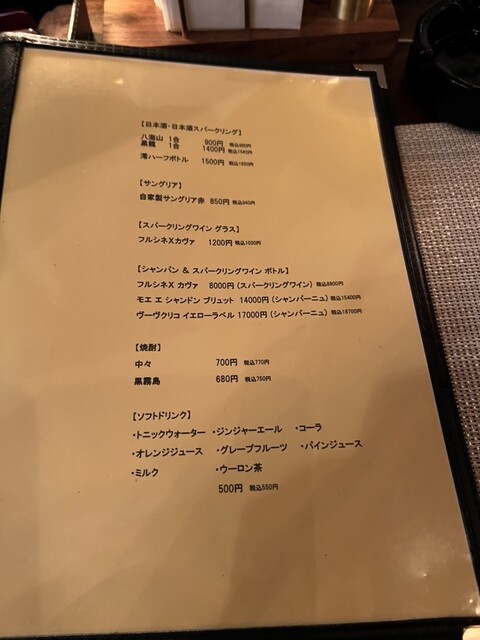 【日本酒・日本酒スパークリング】
八海山 1合 900円 税込990円
黒龍 1合 1400円 税込1540円
澪ハーフボトル 1500円 税込1650円
【サングリア】
自家製サングリア赤 850円 税込940円
【スパークリングワイン グラス】
フルシネXカヴァ 1200円
【シャンパン & スパークリングワイン ボトル】
フルシネX カヴァ 8000円 (スパークリングワイン) 税込8800円
モエ エ シャンドン ブリュット 14000円 (シャンパーニュ) 税込15400円
ヴーヴクリコ イエローラベル 17000円 (シャンパーニュ) 税込18700円
【焼酎】
中々 700円 税込770円
黒霧島 680円 税込750円
【ソフトドリンク】
・トニックウォーター ・ジンジャーエール ・コーラ
・オレンジジュース ・グレープフルーツ ・パインジュース
・ミルク ・ウーロン茶
500円 税込550円